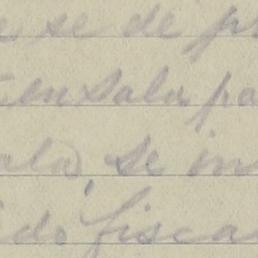 se de
en sala, pa
ala, se in
do fisca